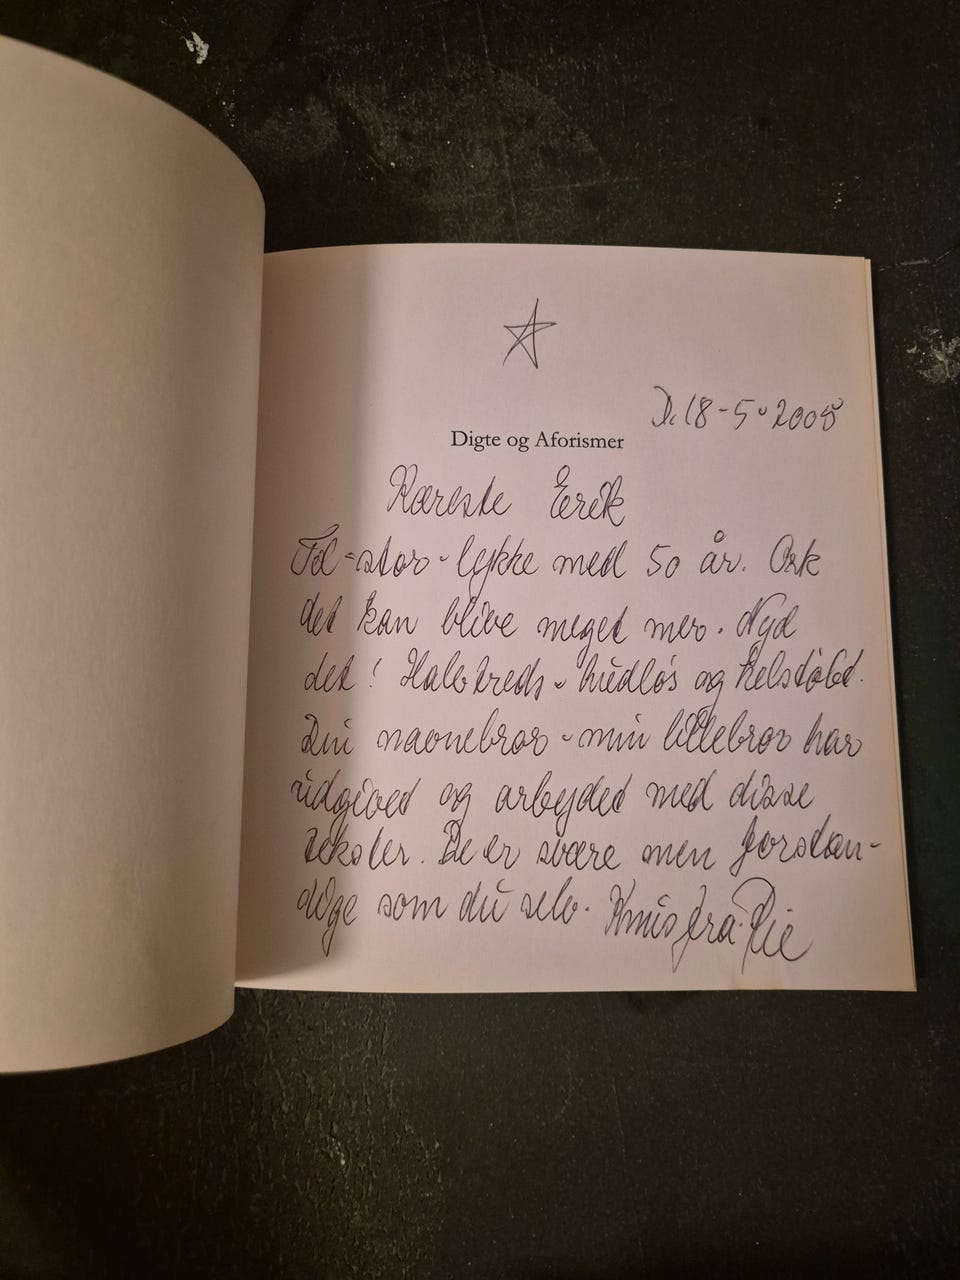 D. 18-5-2008
Digte og Aforismer
Kæreste Erik
Til-stor-lykke med 50 år. Ork
det kan blive meget mer. Nyd
det! Halvtreds - hudløs og helstøbt.
Din navnebror - min lillebror har
udgivet og arbejdet med disse
tekster. De er svære men forstan-
dige som du selv. Knus fra Pie